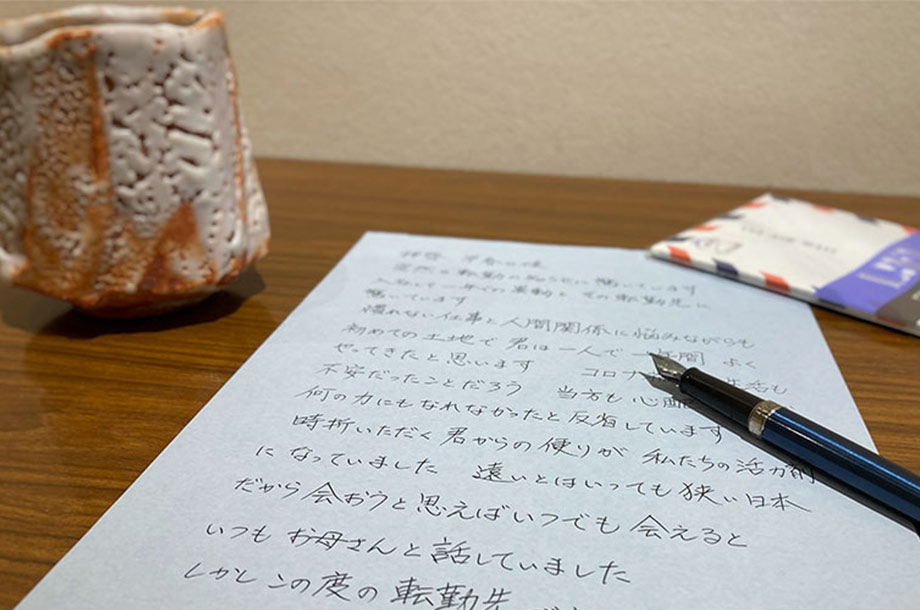 拝啓 早春の候
突然の転勤の知らせに驚いています
入社して一年での異動と その転勤先に
驚いています
慣れない仕事と人間関係に悩みながらも
初めての土地で 君は一人で 一年間 よく
やってきたと思います コロナ 生活も
不安だったことだろう 当方も 心配
何の力にもなれなかったと反省しています
時折いただく君からの便りが 私たちの活力剤
になっていました 遠いとはいっても狭い日本
だから会おうと思えばいつでも会えると
いつもお母さんと話していました
しかしこの度の転勤先